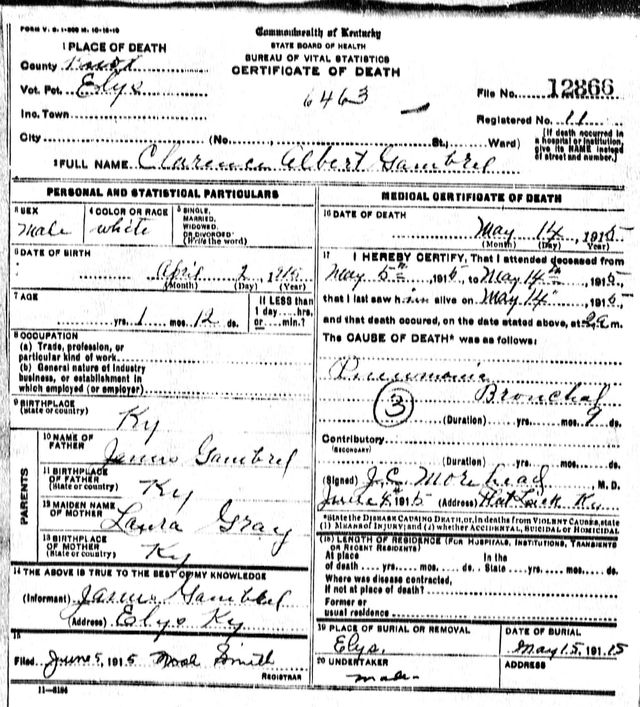 FORM V. S. 1-300 M. 10-16-10
Commonwealth of Kentucky
STATE BOARD OF HEALTH
BUREAU OF VITAL STATISTICS
CERTIFICATE OF DEATH
1 PLACE OF DEATH
County Knox
Vot. Pct. Elys
Inc. Town
City (No. St.; Ward)
6463
File No. 12866
Registered No. 11
[If death occurred in a hospital or institution, give its NAME instead of street and number.]
2 FULL NAME Clarence Albert Gambrel
PERSONAL AND STATISTICAL PARTICULARS
3 SEX
Male
4 COLOR OR RACE
white
5 SINGLE, MARRIED, WIDOWED, OR DIVORCED (Write the word)
6 DATE OF BIRTH
April 2, 1915
(Month) (Day) (Year)
7 AGE
yrs. 1 mos. 12 ds.
If LESS than 1 day hrs. or min.?
8 OCCUPATION
(a) Trade, profession, or particular kind of work
(b) General nature of industry business, or establishment in which employed (or employer)
9 BIRTHPLACE
(State or country) Ky
PARENTS
10 NAME OF FATHER James Gambrel
11 BIRTHPLACE OF FATHER (State or country) Ky
12 MAIDEN NAME OF MOTHER Laura Gray
13 BIRTHPLACE OF MOTHER (State or country) Ky
14 THE ABOVE IS TRUE TO THE BEST OF MY KNOWLEDGE
(Informant) James Gambrel
(Address) Elys Ky
15
Filed June 5, 1915 Smith
REGISTRAR
11-5184
MEDICAL CERTIFICATE OF DEATH
16 DATE OF DEATH
May 14, 1915
(Month) (Day) (Year)
17 I HEREBY CERTIFY, That I attended deceased from
May 5th, 1915, to May 14th, 1915,
that I last saw him alive on May 14, 1915,
and that death occured, on the date stated above, at m.
The CAUSE OF DEATH* was as follows:
Pneumonia
Bronchal
3
(Duration) yrs. mos. 9 ds.
Contributory
(SECONDARY)
(Duration) yrs. mos. ds.
(Signed) J.C. Morehead M. D.
June 4th 1915 (Address) Flat Lick Ky
*State the DISEASE CAUSING DEATH, or, in deaths from VIOLENT CAUSES, state
(1) MEANS OF INJURY; and (2) whether ACCIDENTAL, SUICIDAL or HOMICIDAL
(18) LENGTH OF RESIDENCE (FOR HOSPITALS, INSTITUTIONS, TRANSIENTS OR RECENT RESIDENTS)
At place of death yrs. mos. ds. In the State yrs. mos. ds.
Where was disease contracted, if not at place of death?
Former or usual residence
19 PLACE OF BURIAL OR REMOVAL
Elys.
DATE OF BURIAL
May 15, 1915
20 UNDERTAKER
made
ADDRESS